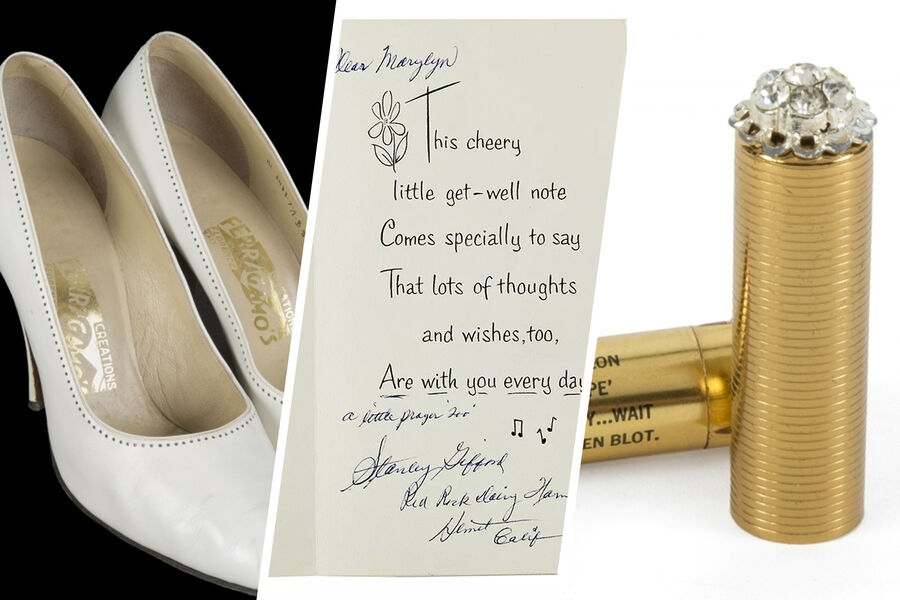 FERRAGAMO'S
CREATIONS
FERRAGAMO'S
Dear Marylyn
This cheery
little get-well note
Comes specially to say
That lots of thoughts
and wishes, too,
Are with you every day
a little prayer "too"
Stanley Gifford
Red Rock Dairy Farm
Hemet
Calif
LON
PE'
Y...WAIT
EN BLOT.